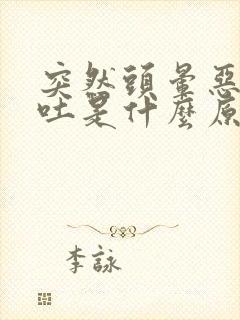 突然頭暈惡
吐是什麼原
李詠